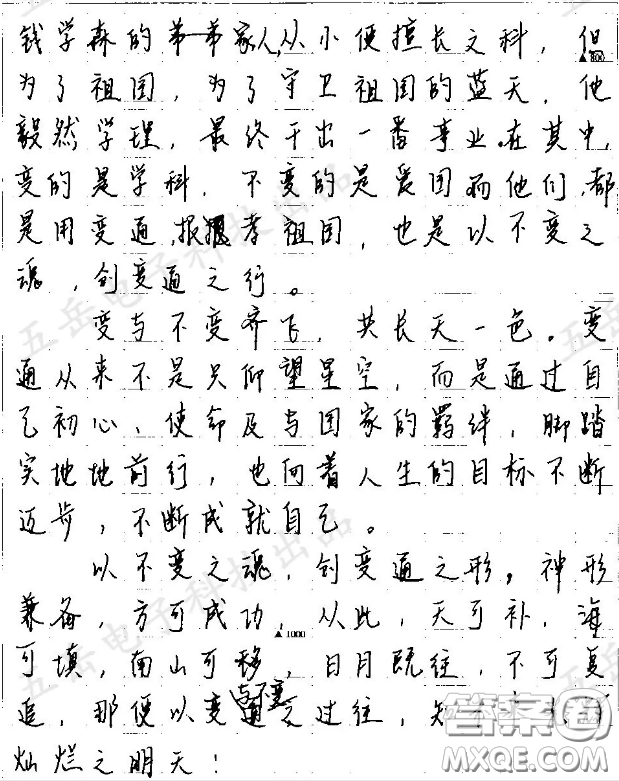 钱学森的家人,从小便擅长文科，但
▲800
为了祖国，为了守卫祖国的蓝天，他
毅然学理，最终干出一番事业。在其中，
变的是学科，不变的是爱国。而他们，都
是用变通，报孝祖国，也是以不变之
魂，创变通之行。
变与不变齐飞，共长天一色。变
通从来不是只仰望星空，而是通过自
己初心、使命及与国家的羁绊，脚踏
实地地前行，也向着人生的目标不断
迈步，不断成就自己。
以不变之魂，创变通之形，神形
兼备，方可成功，从此，天可补，海
▲1000
可填，南山可移，日月既往，不可复
追，那便以变与不变之过往，
灿烂之明天！
五岳电子科技出品
五岳电子科技出品
答案圈
MXQE.COM